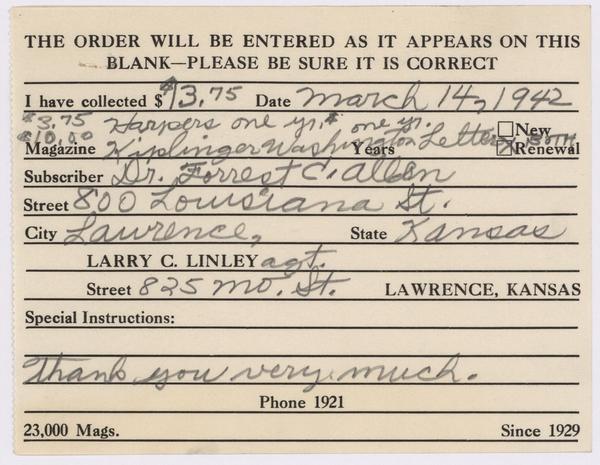 THE ORDER WILL BE ENTERED AS IT APPEARS ON THIS
BLANK—PLEASE BE SURE IT IS CORRECT
I have collected $13.75 Date March 14, 1942
$3.75 Harpers one yr. & one yr.
$10.00 Kiplinger Washington Letter BOTH
Magazine Years New Renewal
Subscriber Dr. Forrest C. Allen
Street 800 Louisiana St.
City Lawrence, State Kansas
LARRY C. LINLEY agt.
Street 825 Mo. St. LAWRENCE, KANSAS
Special Instructions:
Thank you very much.
Phone 1921
23,000 Mags. Since 1929